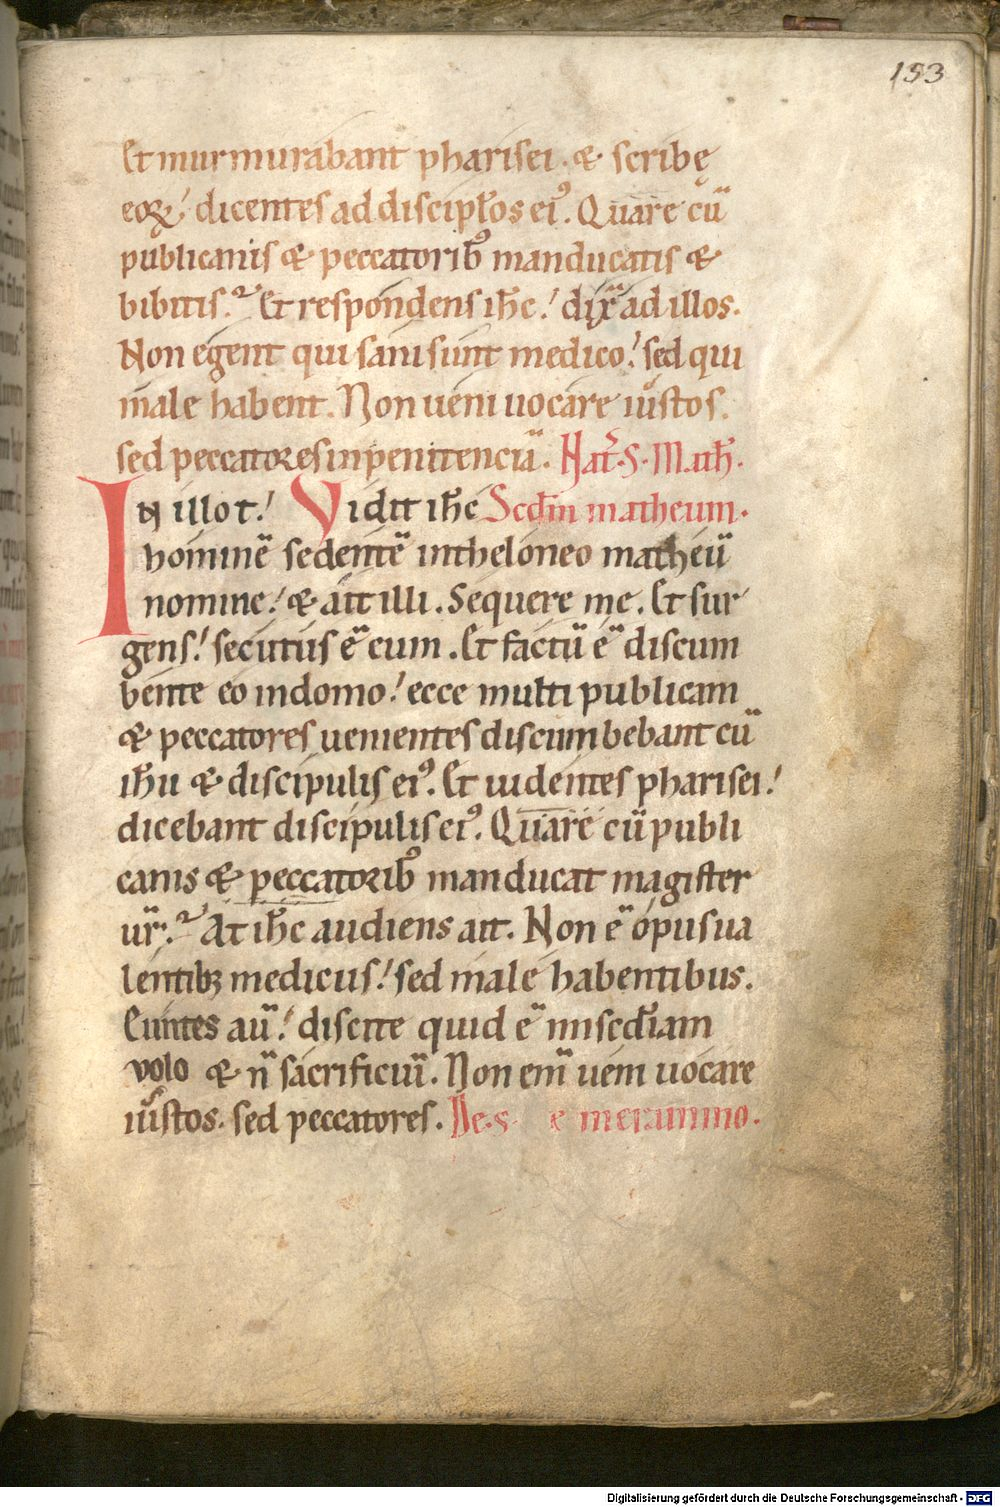 153
Et murmurabant pharisei · & scribę
eoꝝ! dicentes ad discipłos ei⁹. Quare cū
publicanis & peccatorib⁹ manducatis &
bibitis? Et respondens ihc̄! dix̄ ad illos.
Non egent qui sani sunt medico! sed qui
male habent. Non ueni uocare iustos.
sed peccatores inpenitenciā. Nat̄·S·Math̄.
In illo t̄! Vidit ihc̄ Scd̄m matheum.
hominē sedentē intheloneo matheū
nomine! & ait illi. Sequere me. Et sur
gens! secutus ē eum. Et factū ē discum
bente eo indomo! ecce multi publicani
& peccatores uenientes discumbebant cū
ih̄u & discipulis ei⁹. Et uidentes pharisei!
dicebant discipulis ei⁹. Quare cū publi
canis & peccatorib⁹ manducat magister
ur̄? At ihc̄ audiens ait. Non ē opus ua
lentibꝫ medicus! sed male habentibus.
Euntes aū! discite quid ē misc̄diam
volo & n̄ sacrificiū. Non em̄ ueni uocare
iustos. sed peccatores. De·s· e merammo.
Digitalisierung gefördert durch die Deutsche Forschungsgemeinschaft - DFG